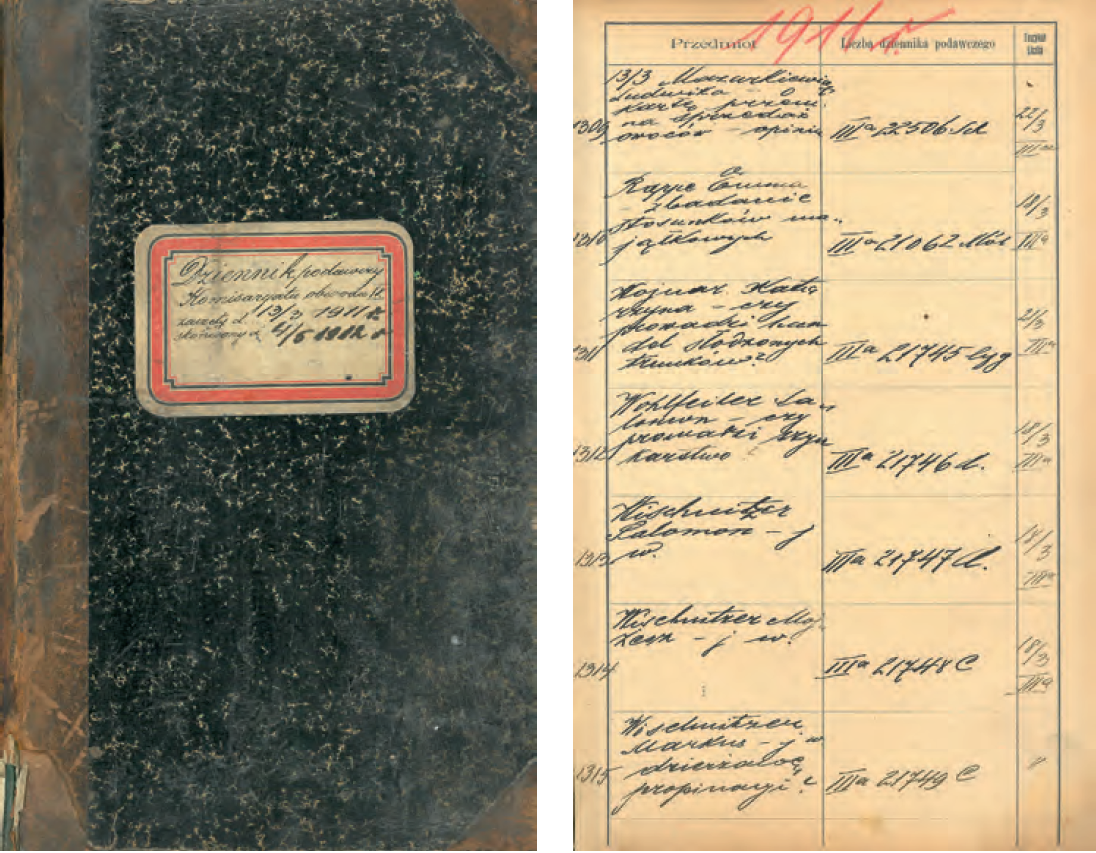 Dziennik podawczy
Komisarjatu obwodu II.
zaczęty d. 13/3 1911 r.
skończony d. 4/5 1912 r
1911 r.
Przedmiot
Liczba dziennika podawczego
Liczba
13/3 Mazurkiewicz
Ludwika – o
kartę przem.
na sprzedaż
1309 owoców – opinia
III a 22506
22/3
III a
Rappe Emma
– zbadanie
stosunków ma-
1310 jątkowych
III a 21062
18/3
III a
Wojnar Kata
rzyna – czy
prowadzi han
del słodzonych
1311 trunków?
III a 21745
21/3
III a
Wohlfeiler Sa-
lomon – czy
prowadzi szyn
1312 karstwo
III a 21746 d.
18/3
III a
Wischnitzer
Salomon – j
1313 w.
III a 21747 d.
18/3
III a
Wischnitzer Moj
żesz – j w.
1314
III a 21748 C
18/3
III a
Wischnitzer
Markus – j w
1315
propinacyi?
III a 21749 C
"